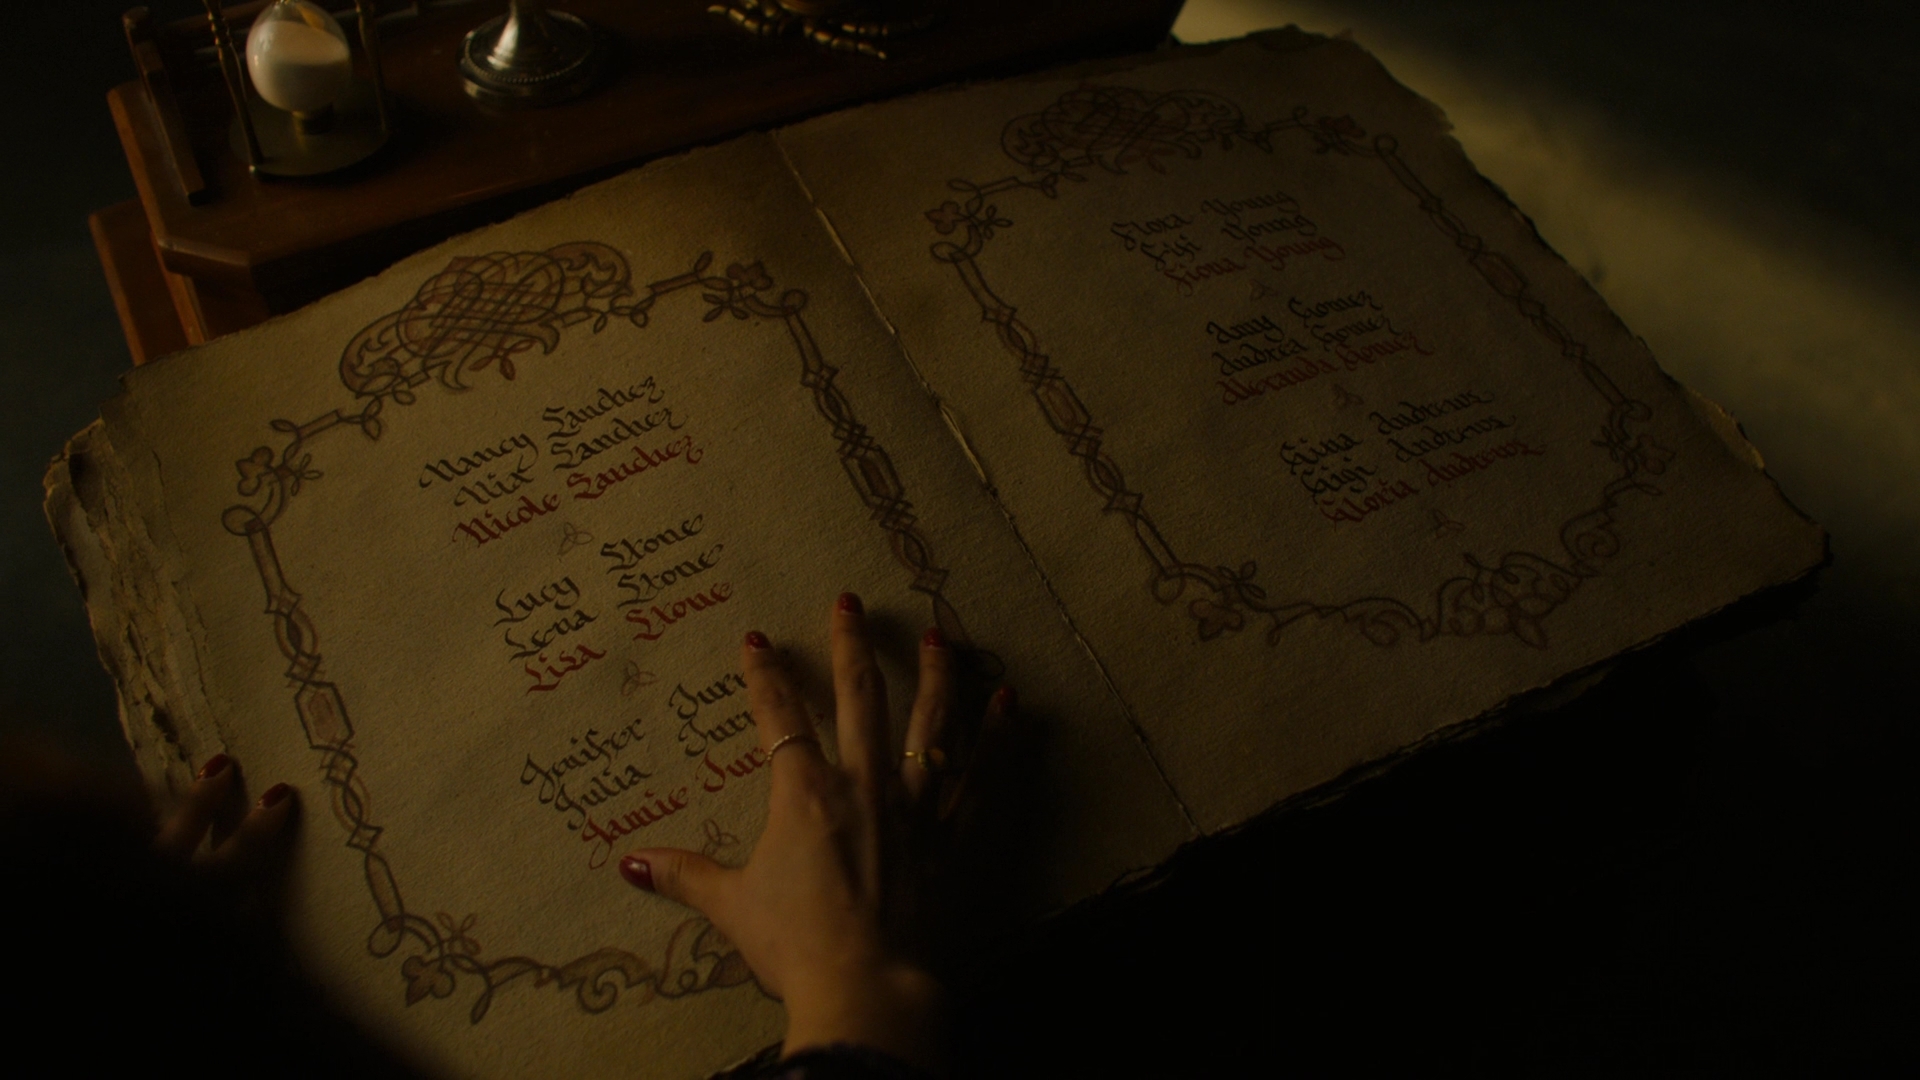 Nancy Sanchez
Nix Sanchez
Nicole Sanchez
Lucy Stone
Lena Stone
Lisa Stone
Jenifer
Julia
Jamie
Flora Young
Fifi Young
Fiona Young
Amy Gomez
Andrea Gomez
Alexanda Gomez
Gina Andrews
Gigi Andrews
Gloria Andrews